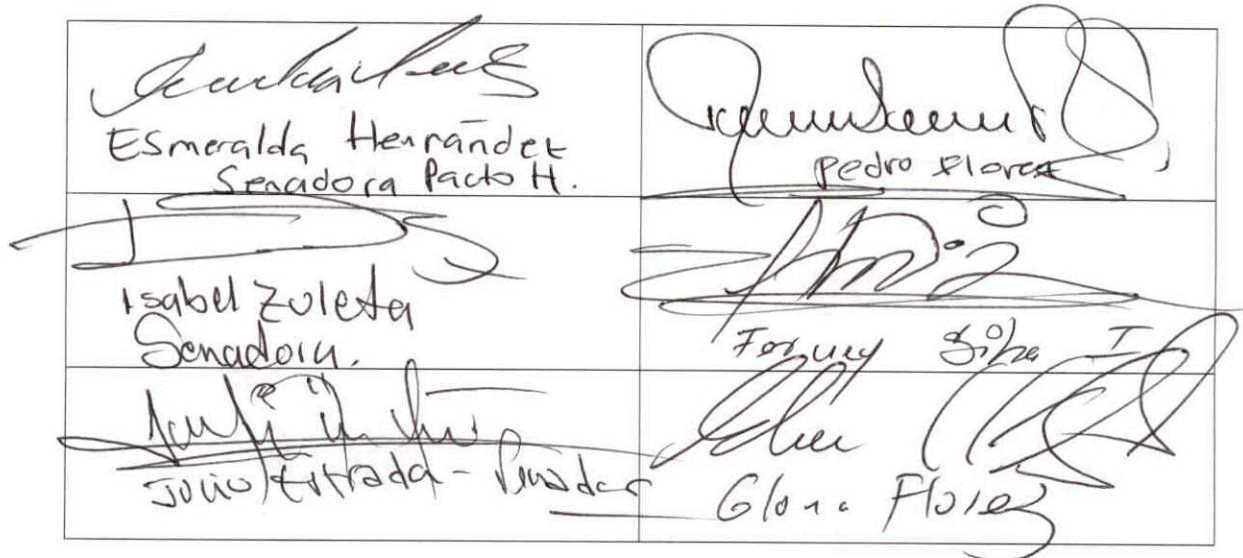 Esmeralda Hernández
Senadora Pacto H.
Pedro Florez
Isabel Zuleta
Senadora.
Ferney Silva I
Julio Estrada - Senador
Gloria Florez